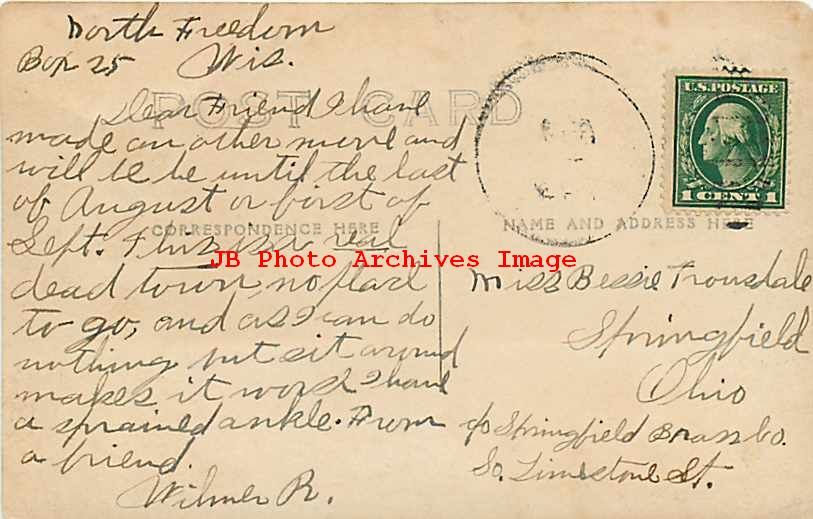 North Freedom
Box 25 Wis.
POST CARD
Dear Friend I have
made an other move and
will be be until the last
of August or first of
CORRESPONDENCE HERE
Sept. This is a real
dead town, no place
to go, and as I can do
nothing but sit around
makes it worst I have
a sprained ankle. From
a friend.
Wilmer R.
U.S. POSTAGE
1 CENT 1
NAME AND ADDRESS HERE
JB Photo Archives Image
Miss Bessie Trousdale
Springfield
Ohio
c/o Springfield Brass Co.
So. Limestone St.